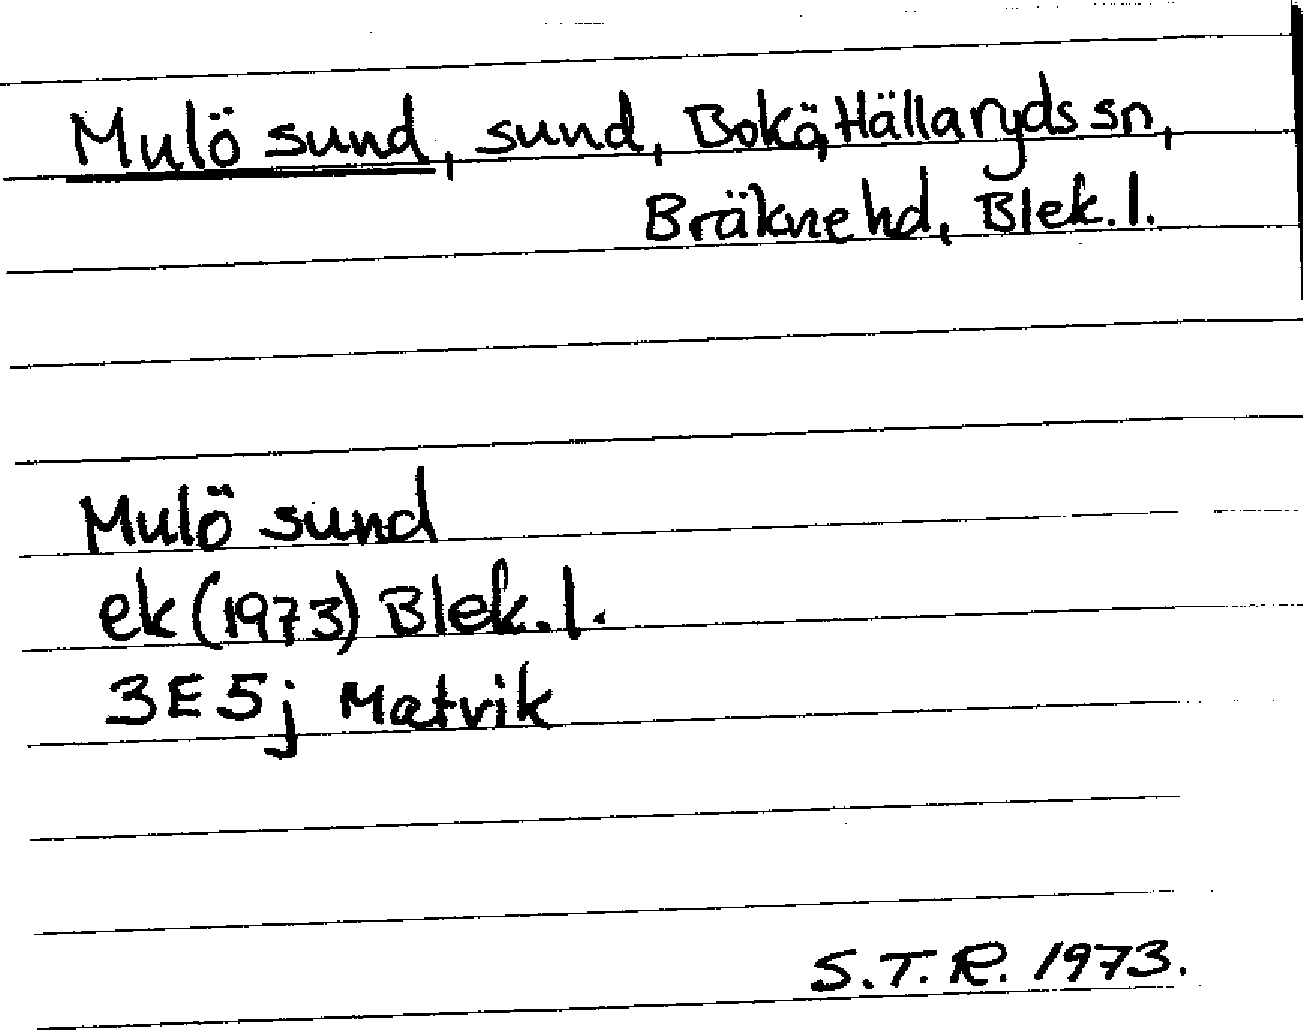 Mulö sund, sund, Bokö, Hällaryds sn,
Bräkne hd, Blek. l.
Mulö sund
ek (1973) Blek. l.
3E5j Matvik
S.T.R. 1973.